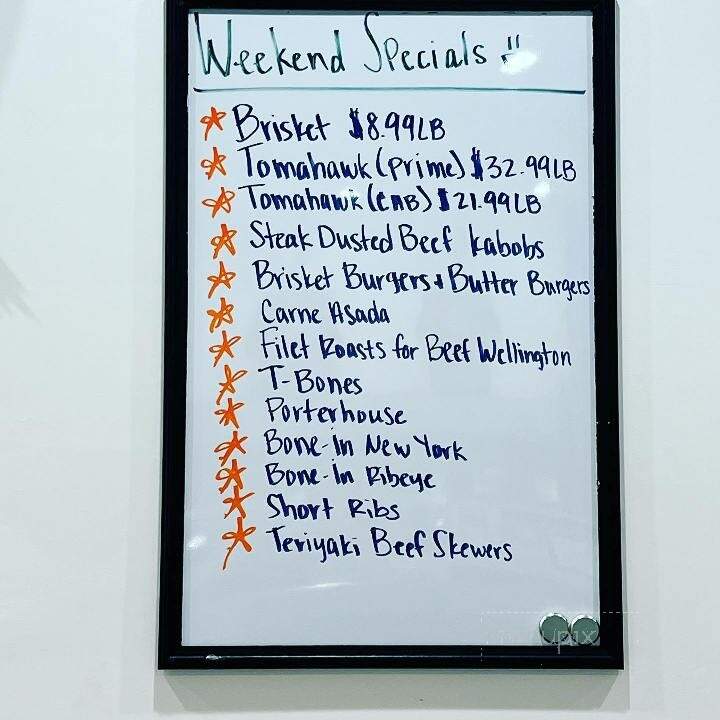 Weekend Specials
Brisket $8.99LB
Tomahawk (prime) $32.99LB
Tomahawk (CAB) $21.99LB
Steak Dusted Beef kabobs
Brisket Burgers & Butter Burgers
Carne Asada
Filet Roasts for Beef Wellington
T-Bones
Porterhouse
Bone-In New York
Bone-In Ribeye
Short Ribs
Teriyaki Beef Skewers